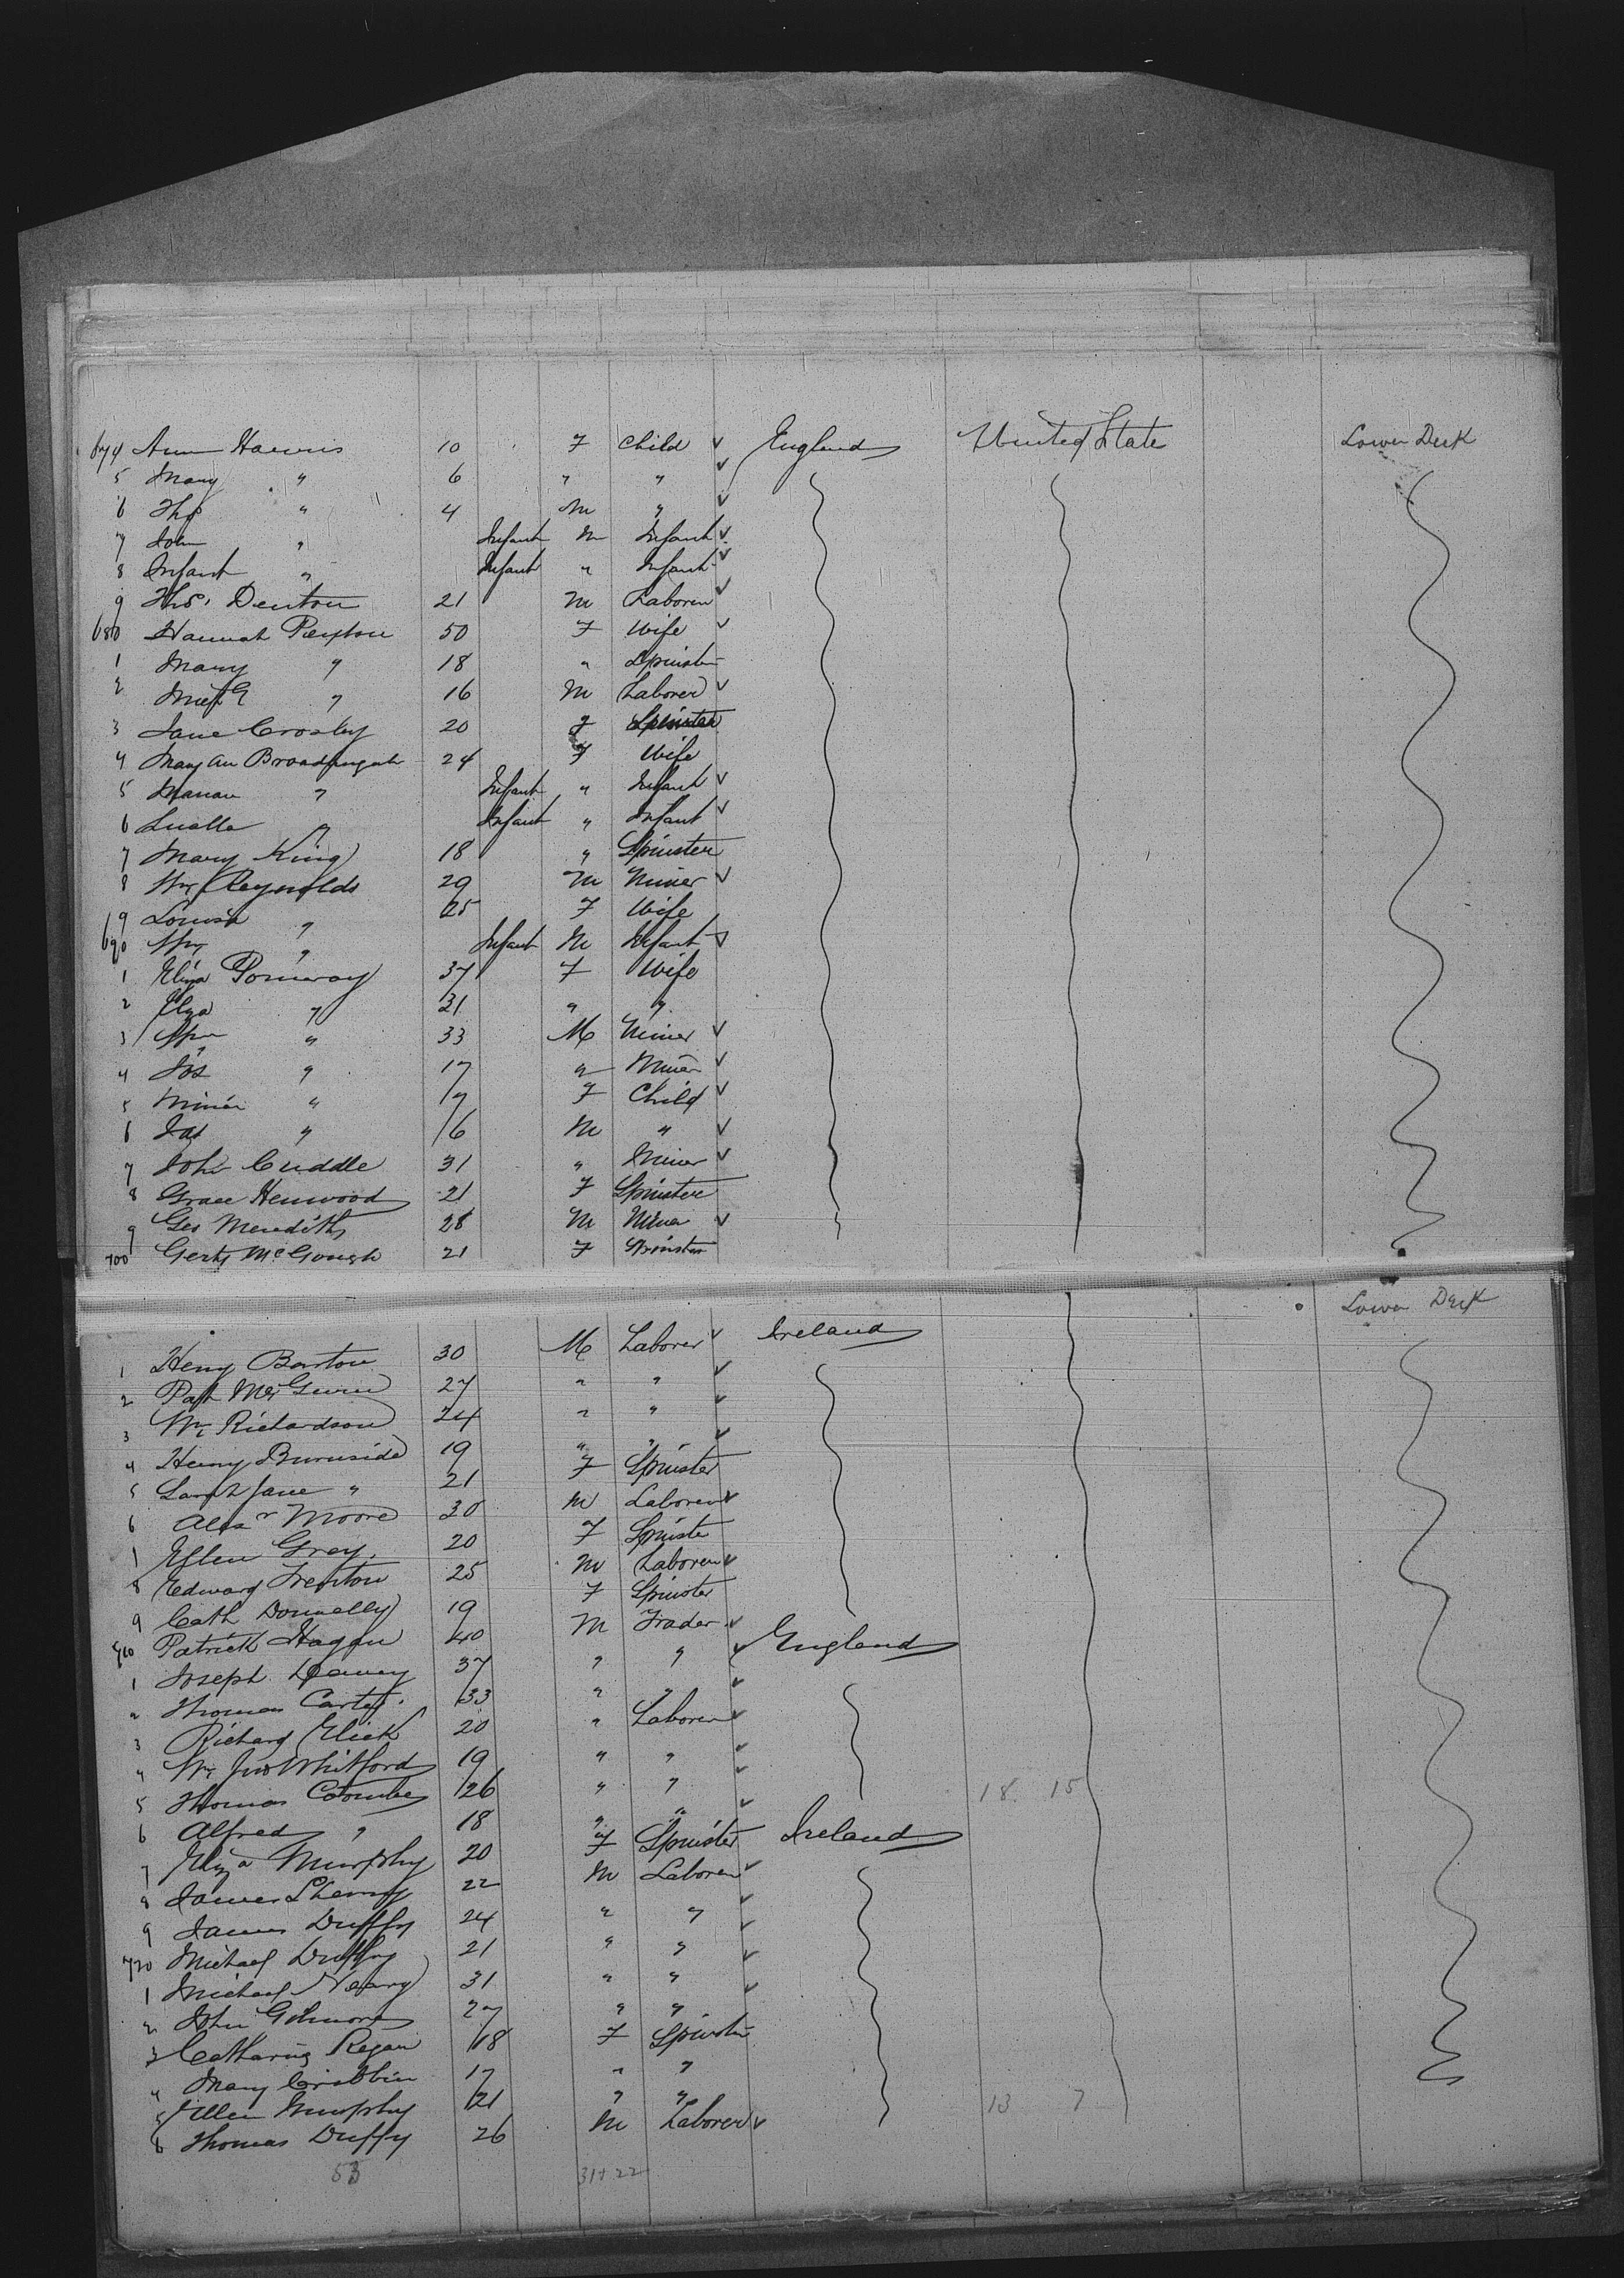 674 Ann Harris 10 F Child ✓ England United State Lower Deck
5 Mary " 6 " " ✓
6 Thos " 4 M " ✓
7 John " Infant M Infant ✓
8 Infant " Infant " Infant ✓
9 Thos. Denton 21 M Laborer ✓
680 Hannah Peyton 50 F Wife ✓
1 Mary " 18 " Spinster
2 " 16 M Laborer ✓
3 Jane Crosby 20 F Spinster
4 Mary An 24 F Wife
5 " Infant " Infant ✓
6 Luella " Infant " Infant ✓
7 Mary King 18 " Spinster
8 Wm Reynolds 29 M Miner ✓
9 Louisa " 25 F Wife
690 Wm " Infant M Infant ✓
1 Eliza Pomeroy 37 F Wife
2 Elza " 31 " "
3 Wm " 33 M Miner ✓
4 Jos " 17 " Miner ✓
5 " F Child ✓
6 Jas " 6 M " ✓
7 John Cuddle 31 " Miner ✓
8 Grace Henwood 21 F Spinster
9 Geo Meredith 28 M Miner ✓
700 McGough 21 F Spinster
Lower Deck
1 Henry Barton 30 M Laborer ✓ Ireland
2 Pat 27 " " ✓
3 Wm Richardson 24 " " ✓
4 Henry Burnside 19 " " ✓
5 Sarah Jane " 21 F Spinster
6 Alexr Moore 30 M Laborer ✓
7 Ellen Grey. 20 F Spinster
8 Edward Trenton 25 M Laborer ✓
9 Cath Donnelly 19 F Spinster
710 Patrick Hagan 40 M Trader ✓
1 Joseph 37 " " ✓ England
2 Thomas Carter 33 " " ✓
3 Richard 20 " Laborer ✓
4 Wm Jno Whitford 19 " " ✓
5 Thomas Coombe 26 " " ✓ 18. 15
6 Alfred " 18 " " ✓
7 Eliza Murphy 20 F Spinster Ireland
8 James 22 M Laborer ✓
9 James Duffy 24 " " ✓
720 Michael Duffy 21 " " ✓
1 Michael Neary 31 " " ✓
2 John Gilmore 27 " " ✓
3 Catharine Regan 18 F Spinster
4 Mary Cribbin 17 " "
5 Ellen Murphy 21 " " 13 7
6 Thomas Duffy 26 M Laborer ✓
53 31+22